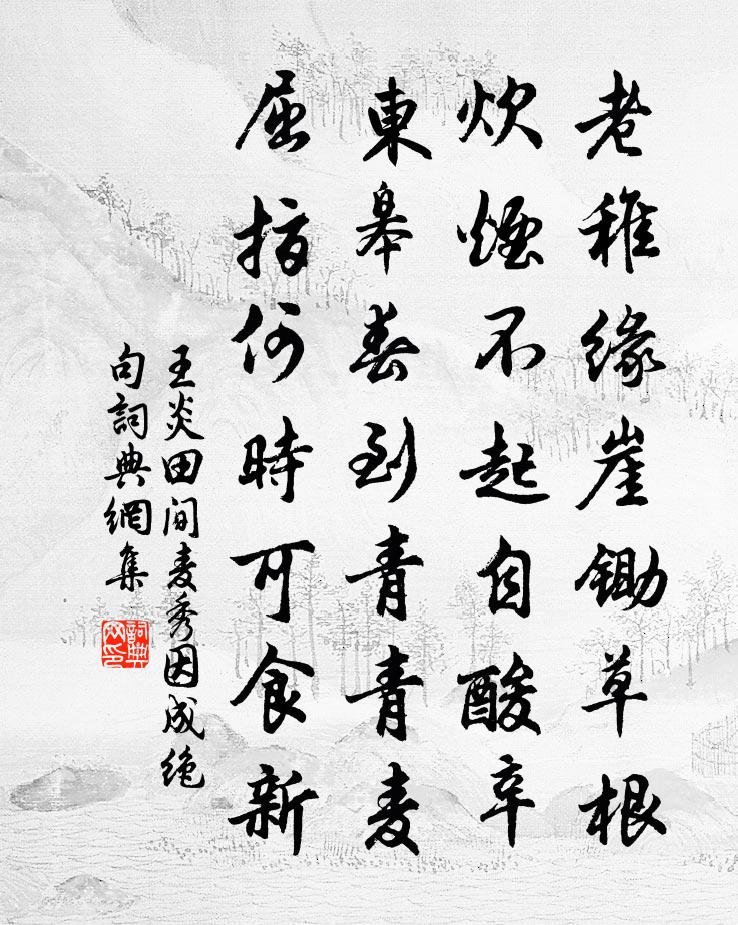 老稚緣崖鋤草根
炊煙不起自酸辛
東皋春到青青麦
屈指何時可食新
王炎田间麦秀因成绝
句詞典網集
詞典
网印